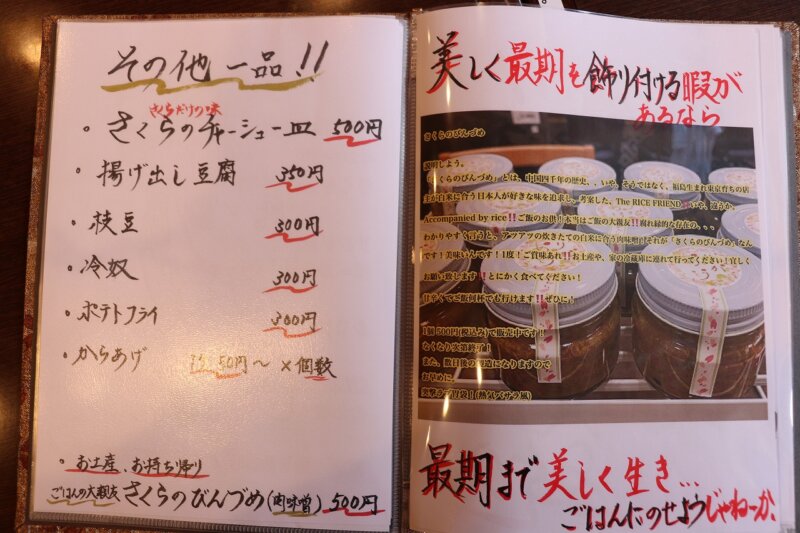 その他一品!!
さくらだけの味
・さくらのチャーシュー皿 500円
・揚げ出し豆腐 350円
・枝豆 300円
・冷奴 300円
・ポテトフライ 300円
・からあげ 50円〜×個数
・お土産、お持ち帰り
ごはんの大親友 さくらのびんづめ(肉味噌) 500円
美しく最期も飾り付ける暇が
あるなら
さくらのびんづめ
説明しよう。
「さくらのびんづめ」とは、中国四千年の歴史、、いや、そうではなく、福島生まれ東京育ちの店
主が白米に合う日本人が好きな味を追求し、考案した、The RICE FRIEND、いや、違うか、
Accompanied by rice!!ご飯のお供!本当はご飯の大親友!!腐れ縁的な存在の、、、
わかりやすく言うと、アツアツの炊きたての白米に合う肉味噌!それが「さくらのびんづめ」なん
です!美味いんです!1度!ご賞味あれ!!お土産や、家の冷蔵庫に連れて行ってください!宜しく
お願い致します!!とにかく食べてください!
甘辛くでご飯何杯でも行けます!!ぜひに!
1個500円(税込み)で販売中です!
なくなり次第終了!
また、数日後の製造になりますので
お早めに、
突撃ラブ胃袋!(熱気バサラ風)
最期まで美しく生き…
ごはんにのせようじゃねーか、